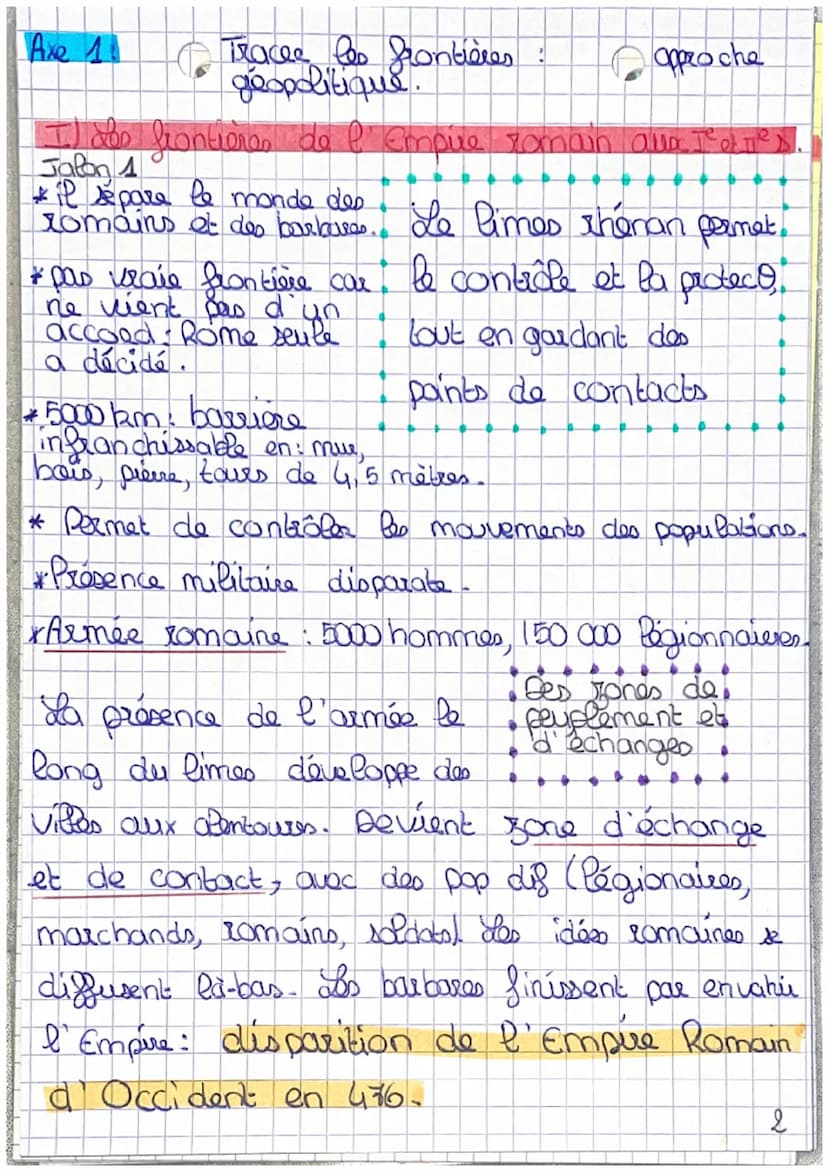 Axe 1: Tracer les frontières : approche
géopolitique.
I) Les frontières de l'Empire romain aux Ie et IIe s.
Jalon 1
* il sépare le monde des
romains et des barbares.
* pas vraie frontière car
ne vient pas d'un
accord : Rome seule
a décidé.
* 5000 km : barrière
infranchissable en : mur,
bois, pierre, tours de 4,5 mètres.
Le limes rhénan permet
le contrôle et la protecO,
tout en gardant des
points de contacts
* Permet de contrôler les mouvements des populations.
* Présence militaire disparate.
* Armée romaine : 5000 hommes, 150 000 légionnaieres.
Des zones de
peuplement et
d'échanges
La présence de l'armée le
long du limes développe des
villes aux alentours. Devient zone d'échange
et de contact, avec des pop dif (légionaires,
marchands, romains, soldats). Les idées romaines se
diffusent là-bas. Les barbares finissent par envahir
l'Empire : disparition de l'Empire Romain
d'Occident en 476.
2